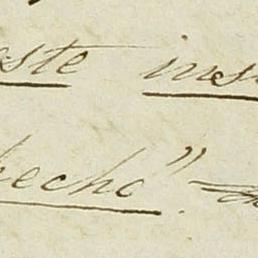 este ins
hecho".